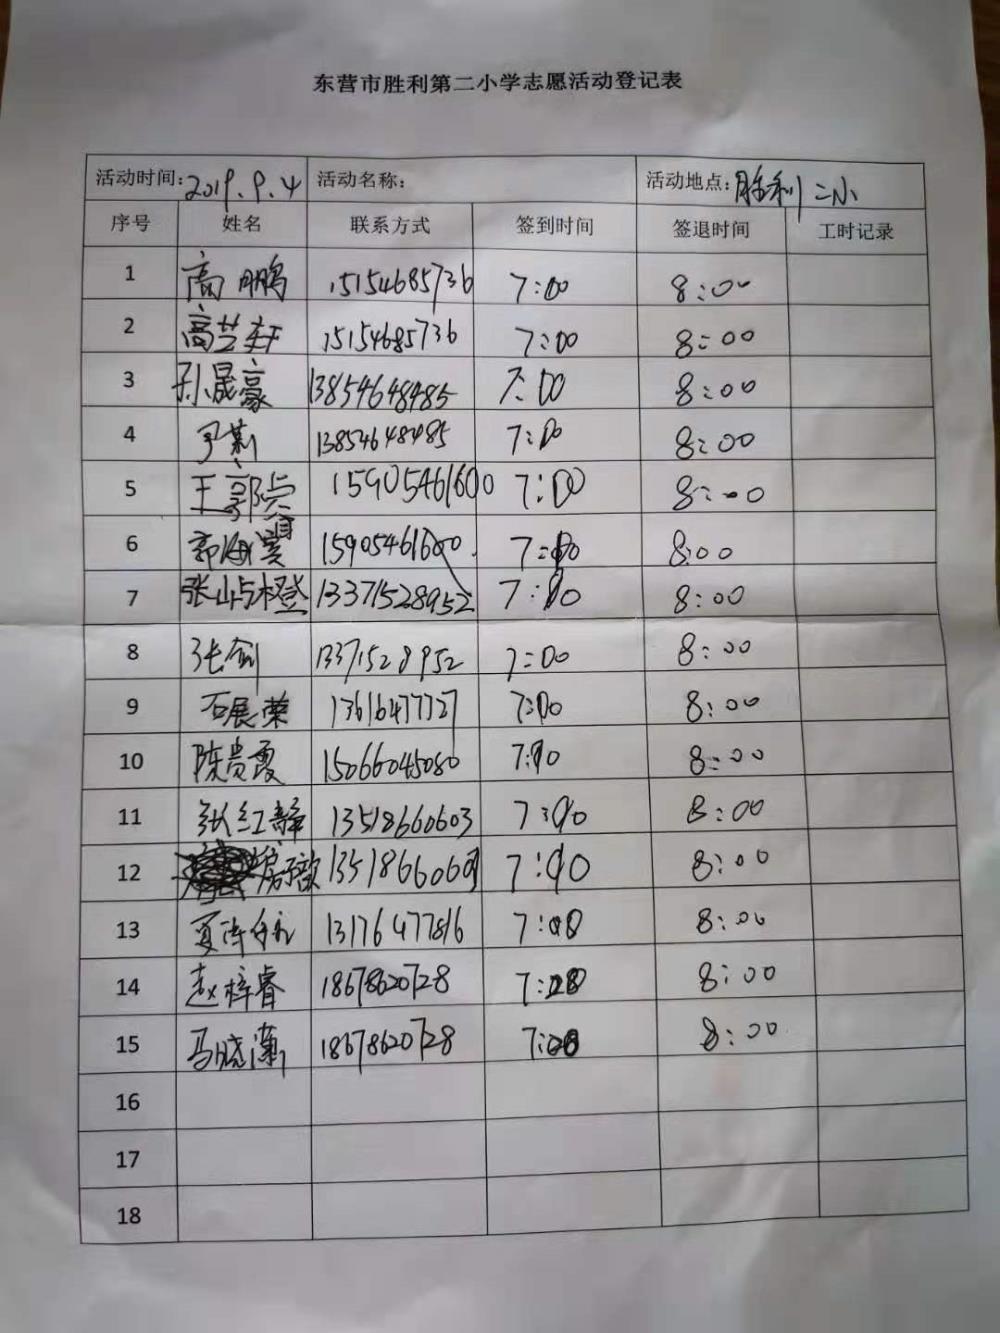 东营市胜利第二小学志愿活动登记表
活动时间: 2019.9.4 活动名称: 活动地点: 胜利二小
序号 姓名 联系方式 签到时间 签退时间 工时记录
1 高鹏 15154685736 7:00 8:00
2 高芝轩 15154685736 7:00 8:00
3 孙晟豪 13854648485 7:00 8:00
4 尹莉 13854648485 7:00 8:00
5 王郭 15905461600 7:00 8:00
6 郭海 15905461600 7:00 8:00
7 张 橙 13371528952 7:00 8:00
8 张剑 13371528952 7:00 8:00
9 石展荣 13616477727 7:00 8:00
10 陈贵霞 15066045080 7:00 8:00
11 张红静 13518660603 7:00 8:00
12 房子歆 1351866060 7:00 8:00
13 夏 13176477816 7:00 8:00
14 赵梓睿 18678620728 7:00 8:00
15 马晓潇 18678620728 7:00 8:00
16
17
18